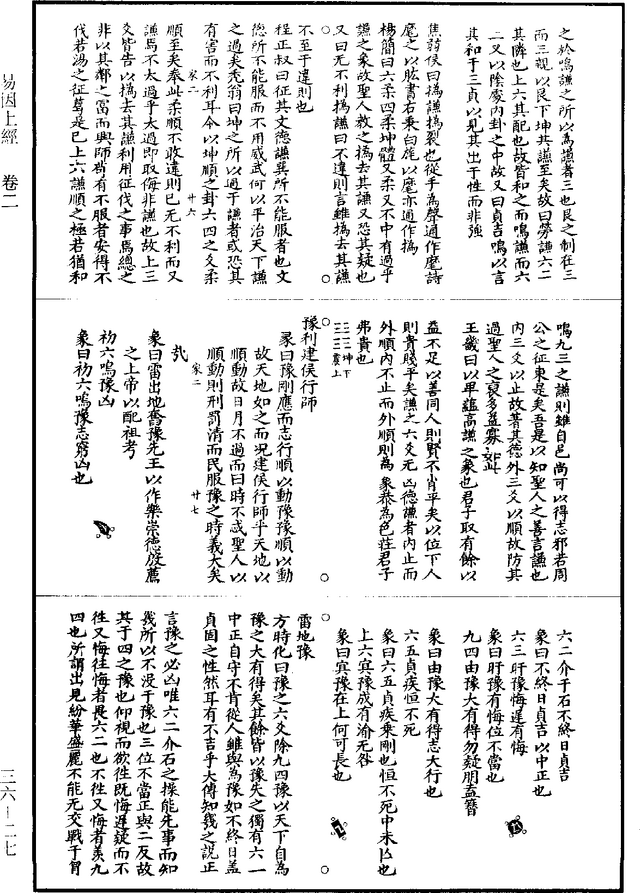 之於鳴謙之所以為謙者三也艮之制在三
而三親以艮下坤其謙至矣故曰勞謙六二
其隣也上六其配也故皆和之而鳴謙而六
二又以陰處內卦之中故又曰貞吉鳴以言
其和于三貞以見其出于性而非強
焦弱侯曰撝謙撝裂也從手為聲通作麾詩
麾之以肱書右秉白旄以麾亦通作撝
楊簡曰六柔四柔坤體又柔又不中有過乎
謙之象故聖人教之撝去其謙又恐其疑也
又曰无不利撝謙曰不違則言雖撝去其謙
不至于違則也
程正叔曰征其文德謙巽所不能服者也文
德所不能服而不用威武何以平治天下謙
之過矣禿翁曰坤之所以過于謙者或恐其
有害而不利耳今以坤順之卦六四之爻柔
順至矣奉此柔順不敢違則已无不利而又
謙焉不太過乎太過即取侮非謙也故上三
爻皆告以撝去其謙利用征伐之事焉總之
非以其鄰之富而興師苟有不服者安得不
伐若湯之征葛是已上六謙順之極若猶和
家二
廿六
鳴九三之謙則雖自邑尚可以得志邪若周
公之征東是矣吾是以知聖人之善言謙也
內三爻以止故著其德外三爻以順故防其
過聖人之裒多益寡如此
王畿曰以卑蘊高謙之象也君子取有餘以
益不足以善同人則賢不肖平矣以位下人
則貴賤平矣謙之六爻无凶德謙者內止而
外順內不止而外順則為象恭為色莊君子
弗貴也
坤下
震上
豫利建侯行師
彖曰豫剛應而志行順以動豫豫順以動
故天地如之而況建侯行師乎天地以
順動故日月不過而四時不忒聖人以
順動則刑罰清而民服豫之時義大矣
哉
家二
廿七
象曰雷出地奮豫先王以作樂崇德殷薦
之上帝以配祖考
初六鳴豫凶
象曰初六鳴豫志窮凶也
六二介于石不終日貞吉
象曰不終日貞吉以中正也
六三盱豫悔遲有悔
象曰盱豫有悔位不當也
九四由豫大有得勿疑朋盍簪
象曰由豫大有得志大行也
六五貞疾恒不死
象曰六五貞疾乘剛也恒不死中未亡也
上六冥豫成有渝无咎
象曰冥豫在上何可長也
雷地豫
方時化曰豫之六爻除九四豫以天下自為
豫之大有得矣其餘皆以豫失之獨有六一
中正自守不肯從人雖與為豫如不終日蓋
貞固之性然耳有不吉乎大傳知幾之說正
言豫之必凶唯六二介石之操能先事而知
幾所以不沒于豫也三位不當正與二反故
其于四之豫也仰視而欲往既悔遲疑而不
往又悔往悔者畏六二也不往又悔者羨九
四也所謂出見紛華盛麗不能无交戰于胷
易因上經 卷二
三六-二七